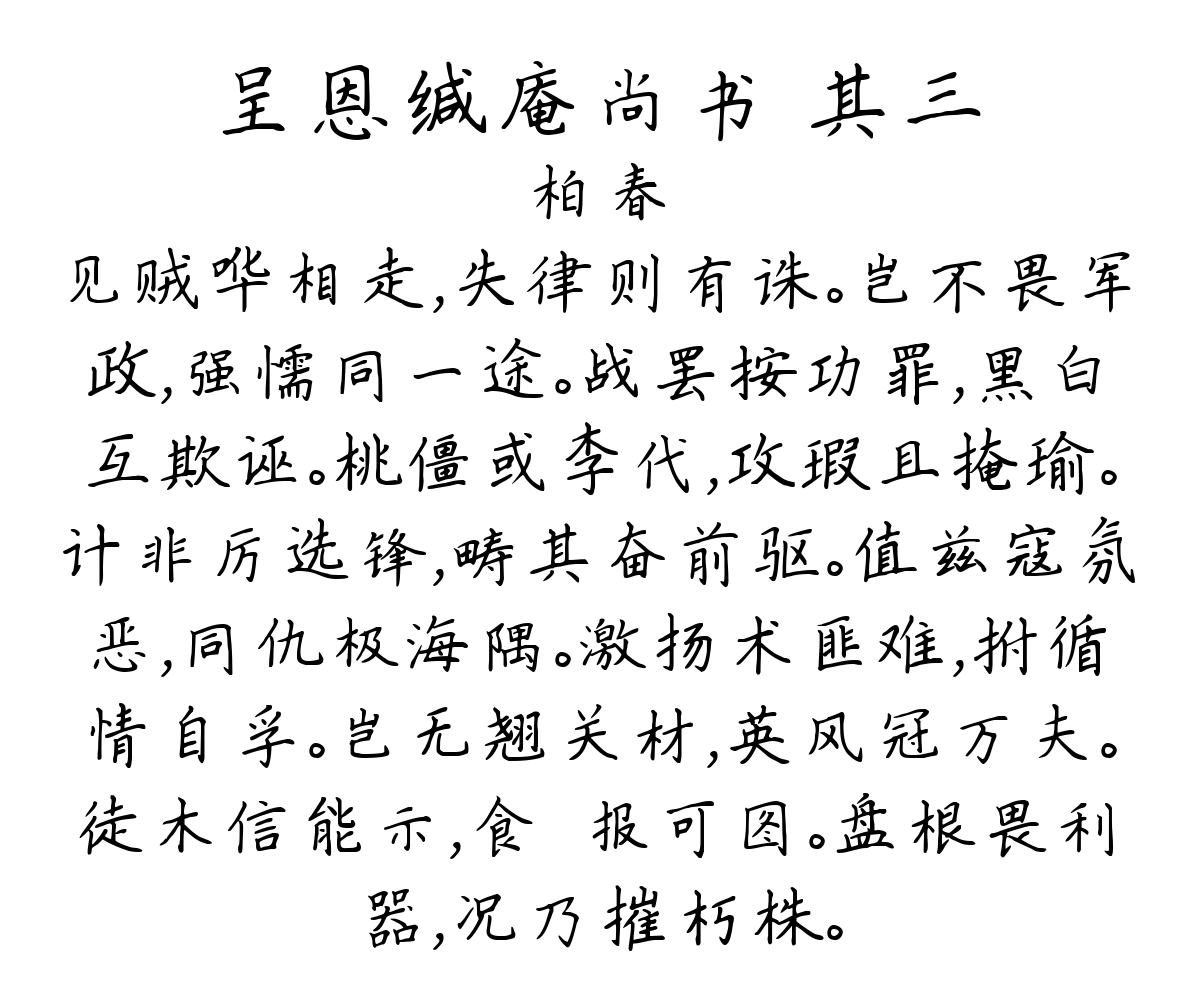 呈恩缄庵尚书 其三
柏春
见贼哗相走,失律则有诛。岂不畏军
政,强懦同一途。战罢按功罪,黑白
互欺诬。桃僵或李代,攻瑕且掩瑜。
计非厉选锋,畴其奋前驱。值兹寇氛
恶,同仇极海隅。激扬术匪难,拊循
情自孚。岂无翘关材,英风冠万夫。
徒木信能示,食 报可图。盘根畏利
器,况乃摧朽株。